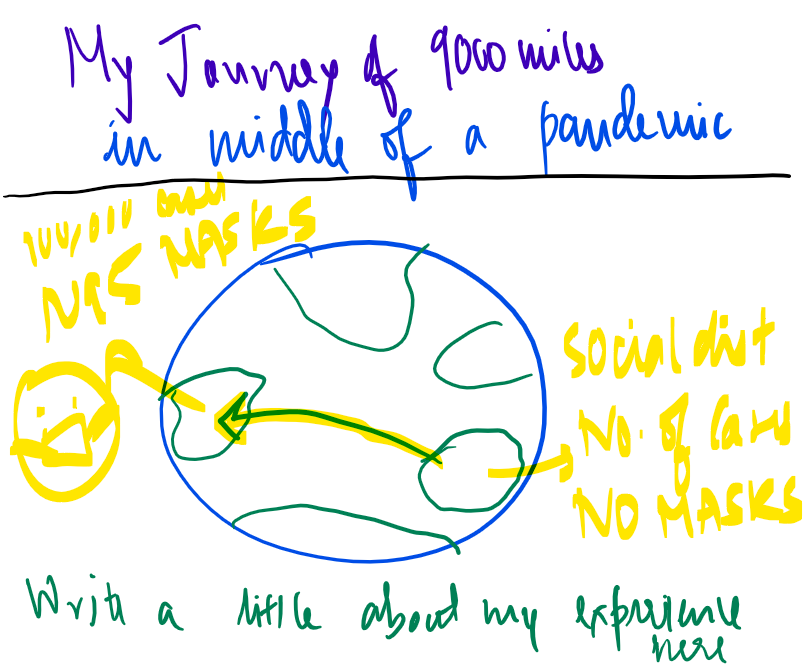 My Journey of 9000 miles
in middle of a pandemic
100,000 cases
N95 MASKS
Social dist
No. of Cases
0
NO MASKS
Write a little about my experience
here